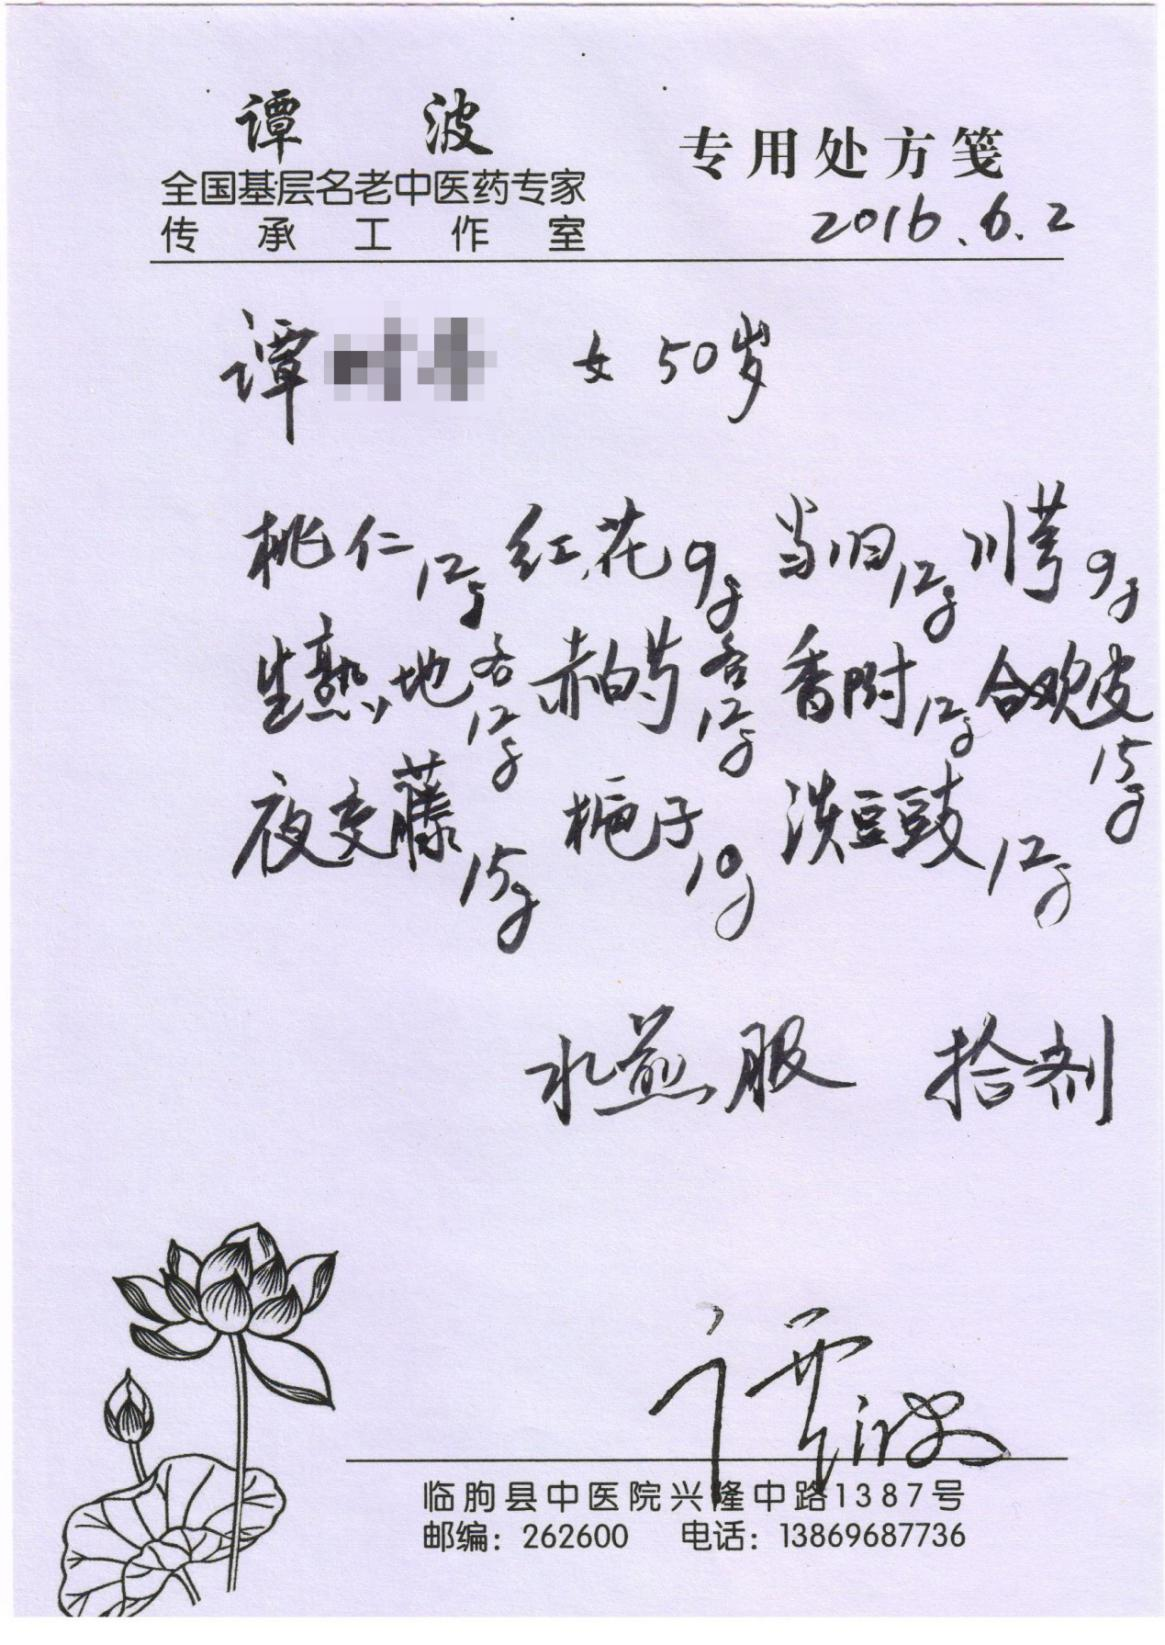 谭 波 专用处方笺
全国基层名老中医药专家
传承工作室 2016.6.2
谭 女 50岁
桃仁12g 红花9g 当归12g 川芎9g
生熟地各12g 赤白芍各12g 香附12g 合欢皮15g
夜交藤15g 栀子10g 淡豆豉12g
水煎服 拾剂
谭波
临朐县中医院兴隆中路1387号
邮编：262600 电话：13869687736